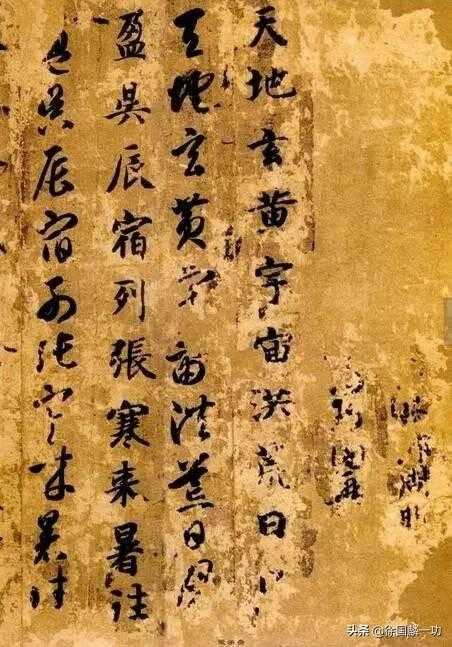 天地玄黄宇宙洪荒日
天地玄黄宇宙洪荒日月
盈昃辰宿列張寒来暑往
盈昃辰宿列張寒来暑往
头条 @徐国麟一功